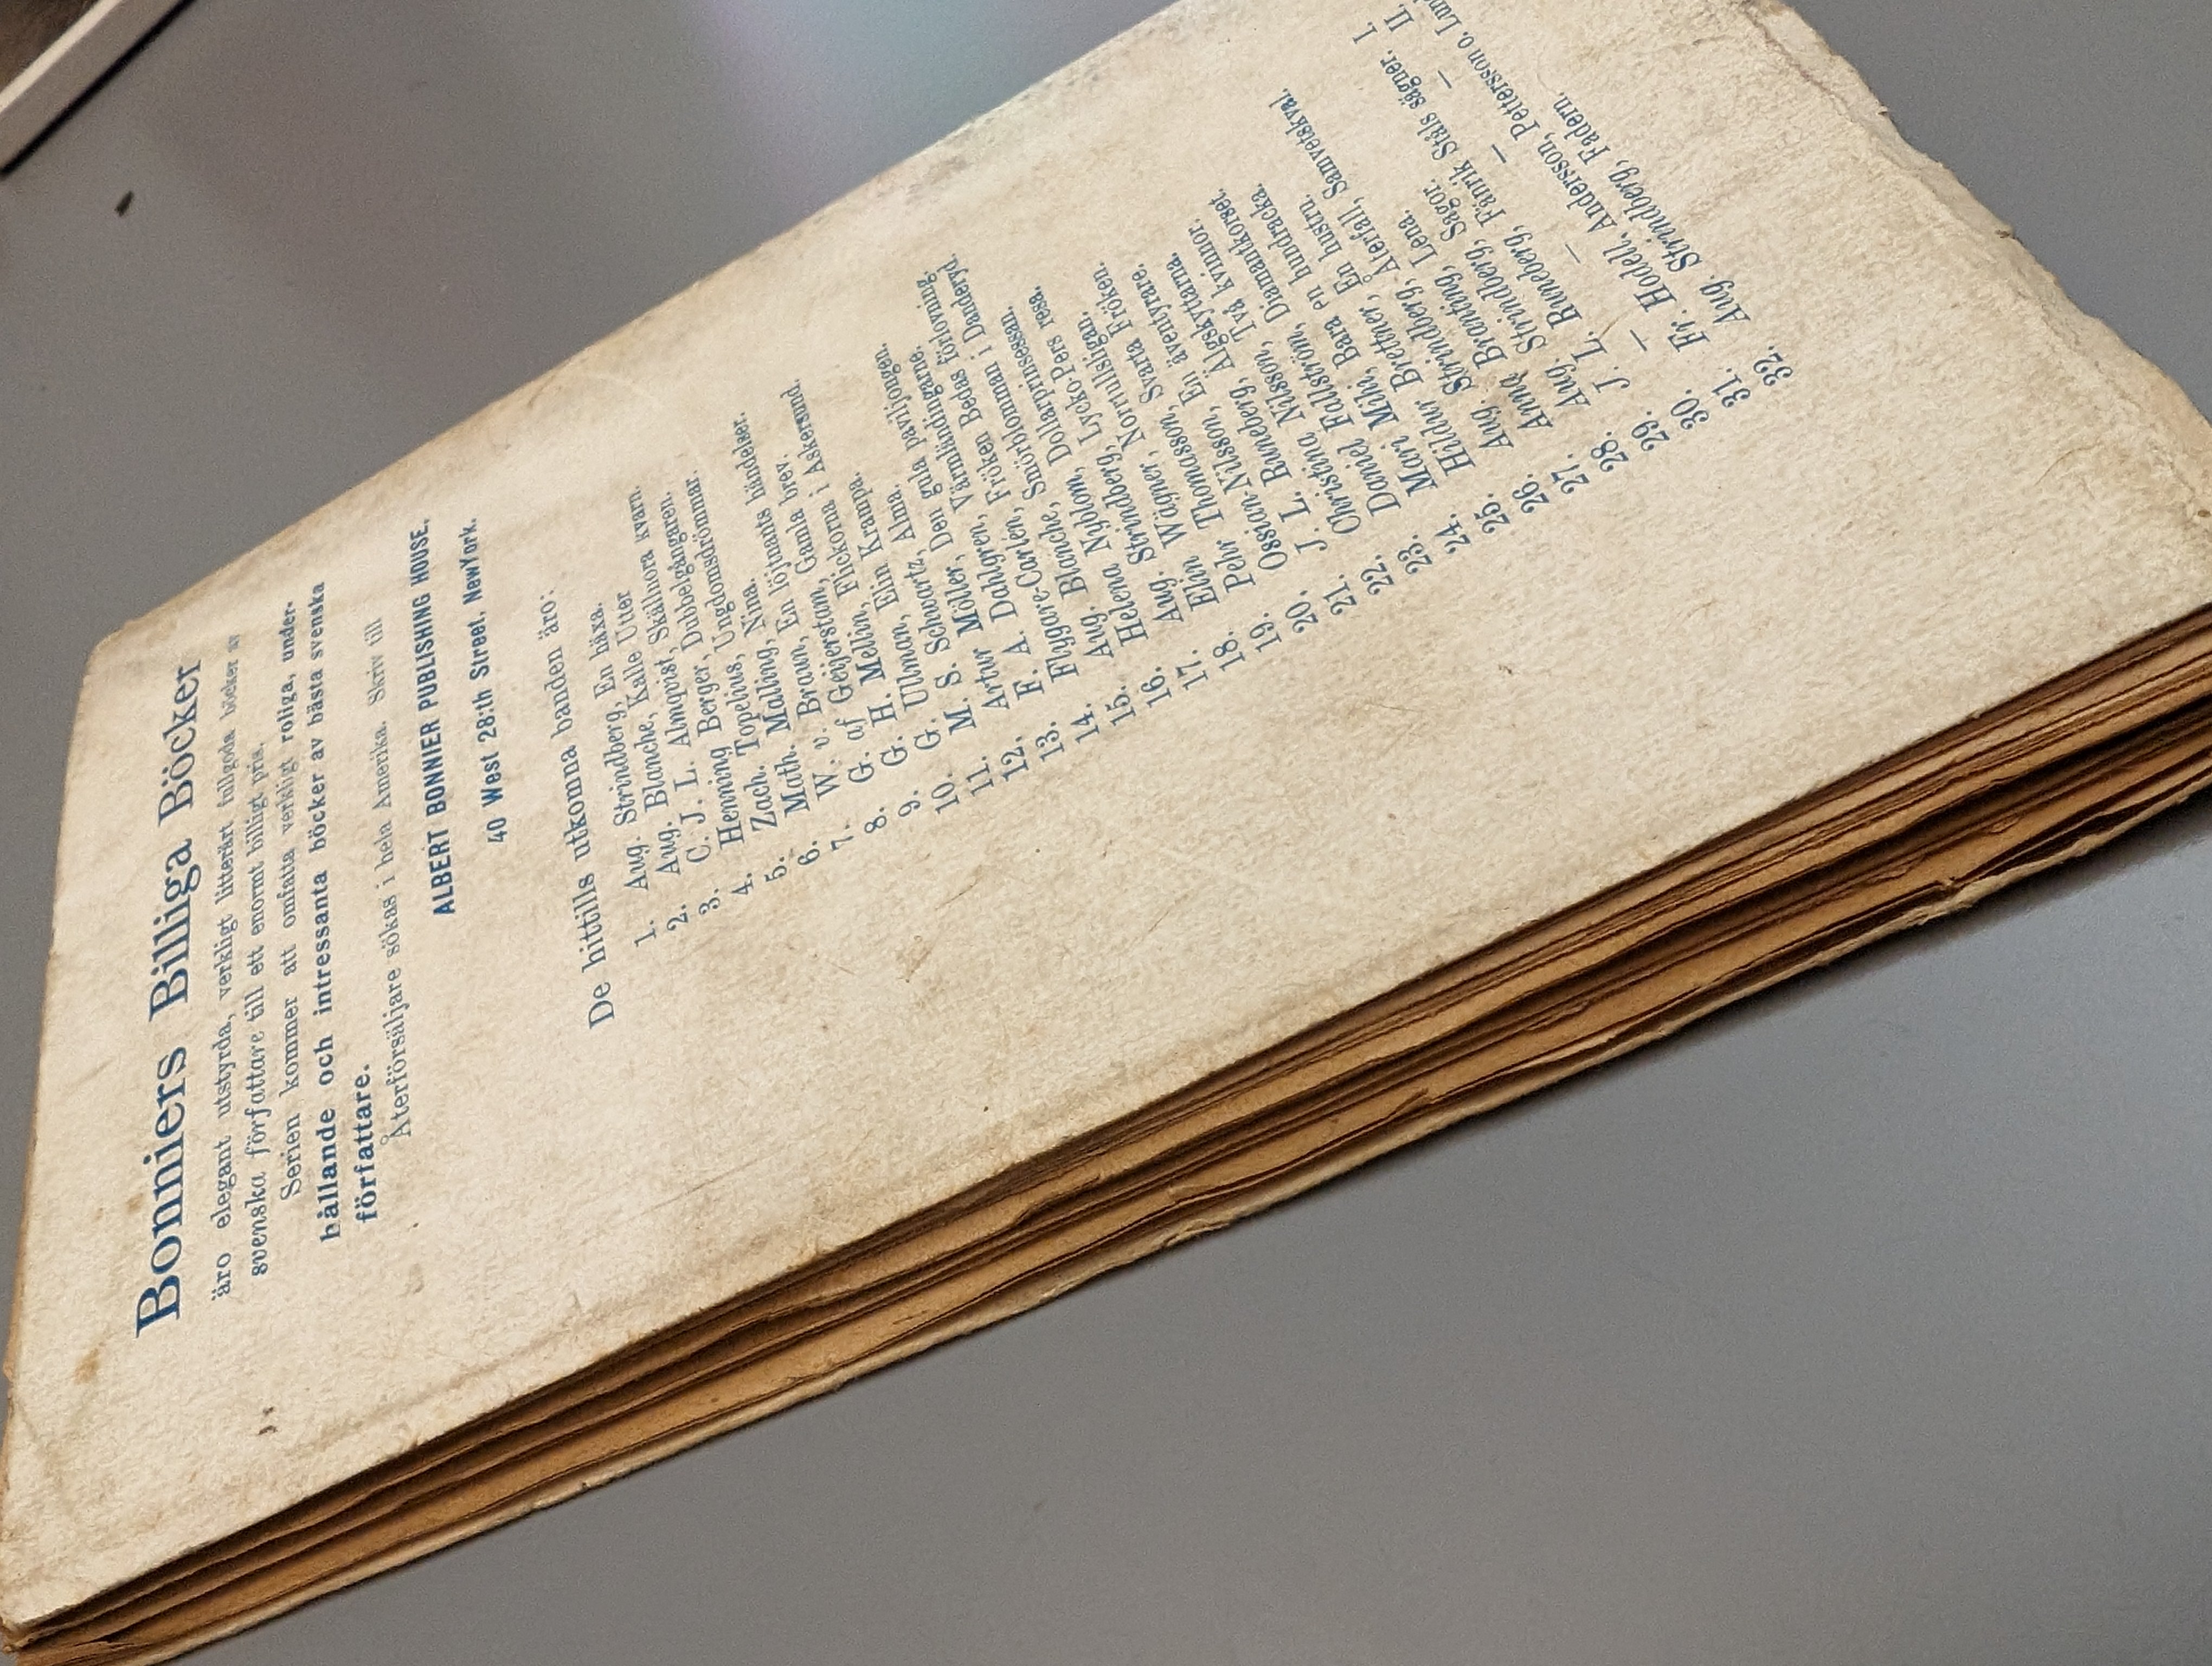 Bonniers Billiga Böcker
äro elegant utstyrda, verkligt litterärt fullgoda böcker av
svenska författare till ett enormt billigt pris.
Serien kommer att omfatta verkligt roliga, under-
hållande och intressanta böcker av bästa svenska
författare.
Återförsäljare sökas i hela Amerika. Skriv till
ALBERT BONNIER PUBLISHING HOUSE,
40 West 28:th Street, NewYork.
De hittills utkomna banden äro:
1. Aug. Strindberg, En häxa.
2. Aug. Blanche, Kalle Uter
3. C. J. L. Almqvist, Skällnora kvarn.
4. Henning Berger, Dubbelgångaren.
5. Zach. Topelius, Ungdomsdrömmar.
6. Math. Malling, Nina.
7. W. v. Braun, En löjtnants händelser.
8. G. af Geijerstam, Gamla brev.
9. G. H. Mellin, Flickorna i Askersund.
10. G. Ulman, Elin Krampa.
11. M. S. Schwartz, Alma.
12. Artur Möller, Den gula paviljongen.
13. F. A. Dahlgren, Värmländingarne.
14. Flygare-Carlén, Fröken Bedas förlovning.
15. Aug. Blanche, Smörblomman i Danderyd.
16. Helena Nyblom, Dollarprinsessan.
17. Aug. Strindberg, Lycko-Pers resa.
18. Elin Wägner, Norrtullsligan.
19. Pehr Thomasson, Svarta Fröken.
20. Ossian-Nilsson, En äventyrare.
21. J. L. Runeberg, Älgskyttarna.
22. Christina Nilsson, Två kvinnor.
23. Daniel Fallström, Diamantkorset.
24. Mari Mihi, Bara en hundracka.
25. Hildur Brettner, En hustru.
26. Aug. Strindberg, Återfall, Samvetskval.
27. Anna Branting, Lena.
28. Aug. Strindberg, Sagor.
29. J. L. Runeberg, Fänrik Ståls sägner. I.
30. — — — — II.
31. Fr. Hodell, Andersson, Pettersson o. Lund
32. Aug. Strindberg, Fadern.